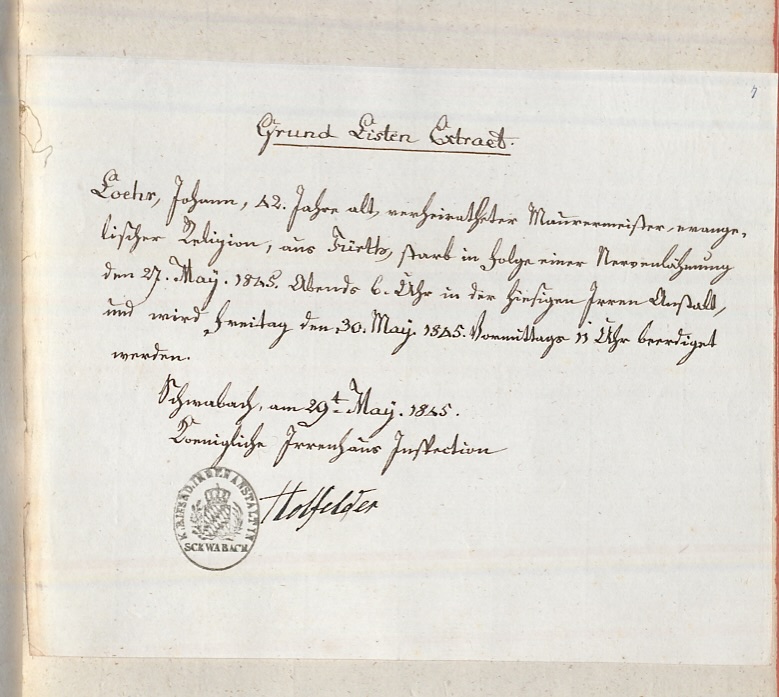 7
Grund Listen Extract.
Loehr, Johann, 42. Jahre alt, verheiratheter Maurermeister, evange,
lischer Religion, aus Fürth, starb in Folge einer Nervenlähmung
den 27. May. 1845. Abends 6. Uhr in der hiesigen Irren Anstalt,
und wird Freitag den 30. May. 1845. Vormittags 11 Uhr beerdiget
werden.
Schwabach, am 29t May. 1845.
Koenigliche Irrenhaus Inspection
Holfelder
IRRENANSTALT IN
SCHWABACH